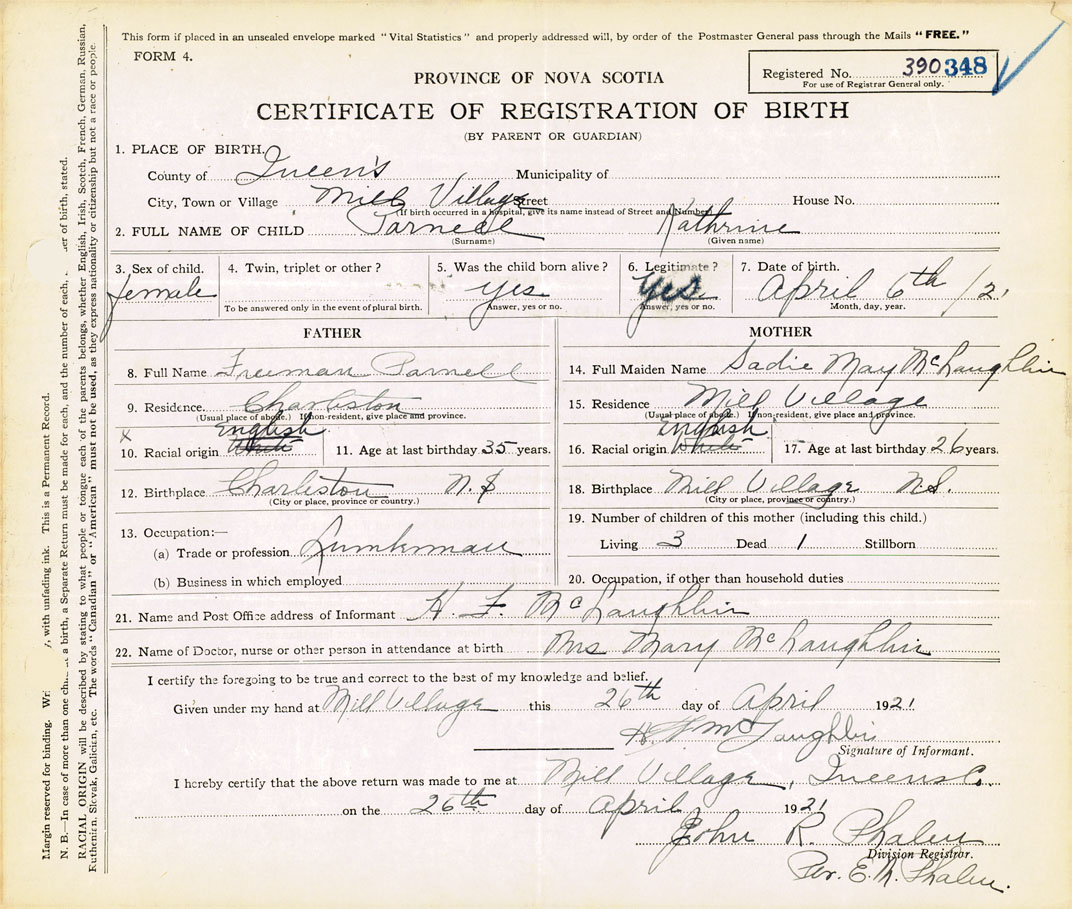 This form if placed in an unsealed envelope marked "Vital Statistics" and properly addressed will, by order of the Postmaster General pass through the Mails "FREE."
FORM 4.
Registered No. 390348
For use of Registrar General only.
PROVINCE OF NOVA SCOTIA
CERTIFICATE OF REGISTRATION OF BIRTH
(BY PARENT OR GUARDIAN)
1. PLACE OF BIRTH.
County of Queen's Municipality of
City, Town or Village Mill Village Street House No.
(If birth occurred in a hospital, give its name instead of Street and Number)
2. FULL NAME OF CHILD Parnell Kathrine
(Surname) (Given name)
3. Sex of child. 4. Twin, triplet or other? 5. Was the child born alive? 6. Legitimate? 7. Date of birth.
female yes Yes April 6th /21
To be answered only in the event of plural birth. Answer, yes or no. Answer, yes or no. Month, day, year.
FATHER
8. Full Name Freeman Parnell
9. Residence. Charleston
(Usual place of abode.) If non-resident, give place and province.
English
x
10. Racial origin White 11. Age at last birthday 35 years.
12. Birthplace Charleston N.S
(City or place, province or country.)
13. Occupation:—
(a) Trade or profession Lumberman
(b) Business in which employed
MOTHER
14. Full Maiden Name Sadie May McLaughlin
15. Residence Mill Village
(Usual place of abode.) If non-resident, give place and province.
English
16. Racial origin White 17. Age at last birthday 26 years.
18. Birthplace Mill Village N.S.
(City or place, province or country.)
19. Number of children of this mother (including this child.)
Living 3 Dead 1 Stillborn
20. Occupation, if other than household duties
21. Name and Post Office address of Informant H. F. McLaughlin
22. Name of Doctor, nurse or other person in attendance at birth Mrs Mary McLaughlin
I certify the foregoing to be true and correct to the best of my knowledge and belief.
Given under my hand at Mill Village this 26th day of April 1921
H. F. McLaughlin
Signature of Informant.
I hereby certify that the above return was made to me at Mill Village, Queens Co.
on the 26th day of April 1921
John R. Phalen
Division Registrar.
Per. E. M. Phalen.
Margin reserved for binding. with unfading ink. This is a Permanent Record.
N. B.—In case of more than one a birth, a Separate Return must be made for each, and the number of each, of birth, stated.
RACIAL ORIGIN will be described by stating to what people or tongue each of the parents belongs, whether English, Irish, Scotch, French, German, Russian,
Ruthenian, Slovak, Galician, etc. The words "Canadian" or "American" must not be used, as they express nationality or citizenship but not a race or people.